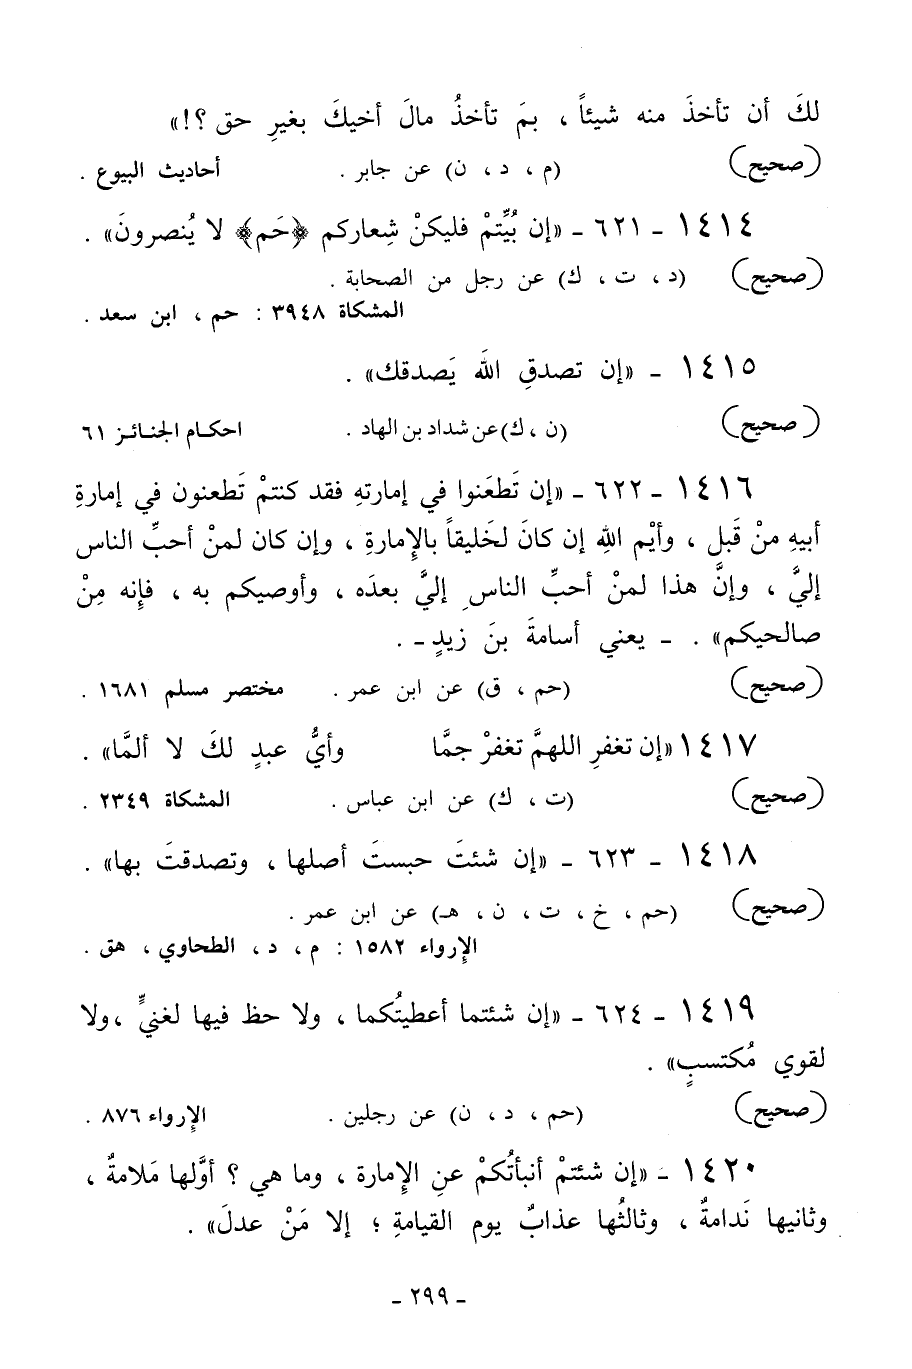 لكَ أن تأخذَ منه شيئاً ، بمَ تأخذُ مالَ أخيكَ بغيرِ حق ؟!»
(صحيح) (م ، د ، ن) عن جابر . أحاديث البيوع .
١٤١٤ - ٦٢١ - «إن بُيِّتمْ فليكنْ شِعاركم ﴿حَم﴾ لا يُنصرونَ» .
(صحيح) (د ، ت ، ك) عن رجل من الصحابة .
المشكاة ٣٩٤٨ : حم ، ابن سعد .
١٤١٥ - «إن تصدقِ اللهَ يَصدقك» .
(صحيح) (ن ، ك) عن شداد بن الهاد . احكام الجنائز ٦١
١٤١٦ - ٦٢٢ - «إن تَطعَنوا في إمارتهِ فقد كنتمْ تَطعنون في إمارةِ
أبيهِ منْ قَبل ، وأيْم اللهِ إن كانَ لخَليقاً بالإمارةِ ، وإن كان لمنْ أحبِّ الناس
إليَّ ، وإنَّ هذا لمنْ أحبِّ الناسِ إليَّ بعدَه ، وأوصيكم به ، فإنه مِنْ
صالحيكم» . - يعني أسامةَ بنَ زيدٍ - .
(صحيح) (حم ، ق) عن ابن عمر . مختصر مسلم ١٦٨١ .
١٤١٧ «إن تغفرِ اللهمَّ تغفرْ جمَّا وأيُّ عبدٍ لكَ لا ألمَّا» .
(صحيح) (ت ، ك) عن ابن عباس . المشكاة ٢٣٤٩ .
١٤١٨ - ٦٢٣ - «إن شئتَ حبستَ أصلها ، وتصدقتَ بها» .
(صحيح) (حم ، خ ، ت ، ن ، هـ) عن ابن عمر .
الإرواء ١٥٨٢ : م ، د ، الطحاوي ، هق .
١٤١٩ - ٦٢٤ - «إن شئتما أعطيتُكما ، ولا حظ فيها لغنيٍّ ، ولا
لقوي مُكتسبٍ» .
(صحيح) (حم ، د ، ن) عن رجلين . الإرواء ٨٧٦ .
١٤٢٠ - «إن شئتمْ أنبأتُكمْ عنِ الإمارة ، وما هي ؟ أوَّلها مَلامةٌ ،
وثانيها نَدامةٌ ، وثالثُها عذابٌ يوم القيامةِ ؛ إلا مَنْ عدلَ» .
- ٢٩٩ -